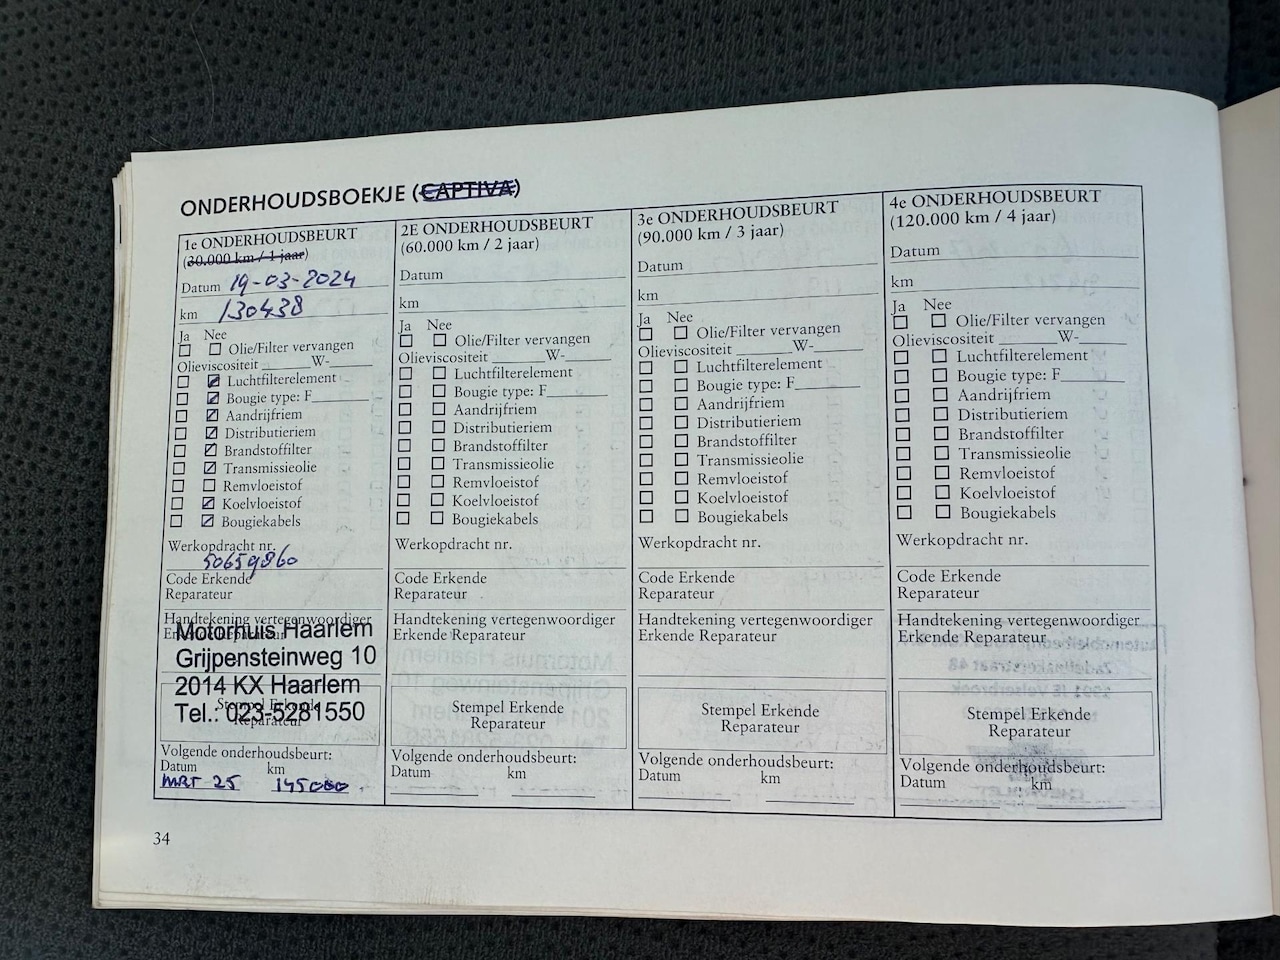 ONDERHOUDSBOEKJE (CAPTIVA)
1e ONDERHOUDSBEURT
(30.000 km / 1 jaar)
Datum 19-03-2024
km 130438
Ja Nee
Olie/Filter vervangen
Olieviscositeit ______W-______
Luchtfilterelement
Bougie type: F________
Aandrijfriem
Distributieriem
Brandstoffilter
Transmissieolie
Remvloeistof
Koelvloeistof
Bougiekabels
Werkopdracht nr.
50659860
Code Erkende
Reparateur
Handtekening vertegenwoordiger
Erkende Reparateur
Motorhuis Haarlem
Grijpensteinweg 10
2014 KX Haarlem
Tel.: 023-5281550
Stempel Erkende
Reparateur
Volgende onderhoudsbeurt:
Datum km
MRT 25 145000
2E ONDERHOUDSBEURT
(60.000 km / 2 jaar)
Datum
km
Ja Nee
Olie/Filter vervangen
Olieviscositeit ______W-______
Luchtfilterelement
Bougie type: F________
Aandrijfriem
Distributieriem
Brandstoffilter
Transmissieolie
Remvloeistof
Koelvloeistof
Bougiekabels
Werkopdracht nr.
Code Erkende
Reparateur
Handtekening vertegenwoordiger
Erkende Reparateur
Stempel Erkende
Reparateur
Volgende onderhoudsbeurt:
Datum km
3e ONDERHOUDSBEURT
(90.000 km / 3 jaar)
Datum
km
Ja Nee
Olie/Filter vervangen
Olieviscositeit ______W-______
Luchtfilterelement
Bougie type: F________
Aandrijfriem
Distributieriem
Brandstoffilter
Transmissieolie
Remvloeistof
Koelvloeistof
Bougiekabels
Werkopdracht nr.
Code Erkende
Reparateur
Handtekening vertegenwoordiger
Erkende Reparateur
Stempel Erkende
Reparateur
Volgende onderhoudsbeurt:
Datum km
4e ONDERHOUDSBEURT
(120.000 km / 4 jaar)
Datum
km
Ja Nee
Olie/Filter vervangen
Olieviscositeit ______W-______
Luchtfilterelement
Bougie type: F________
Aandrijfriem
Distributieriem
Brandstoffilter
Transmissieolie
Remvloeistof
Koelvloeistof
Bougiekabels
Werkopdracht nr.
Code Erkende
Reparateur
Handtekening vertegenwoordiger
Erkende Reparateur
Stempel Erkende
Reparateur
Volgende onderhoudsbeurt:
Datum km
34